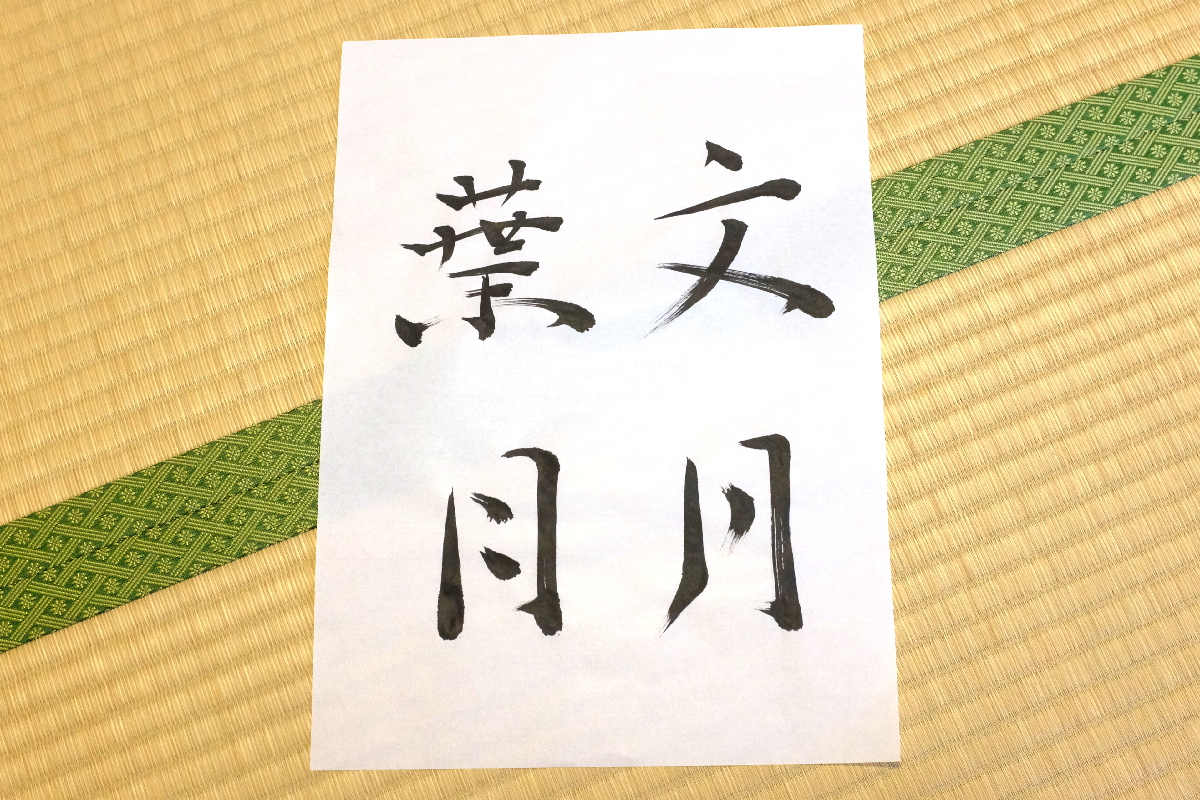 文月
葉月